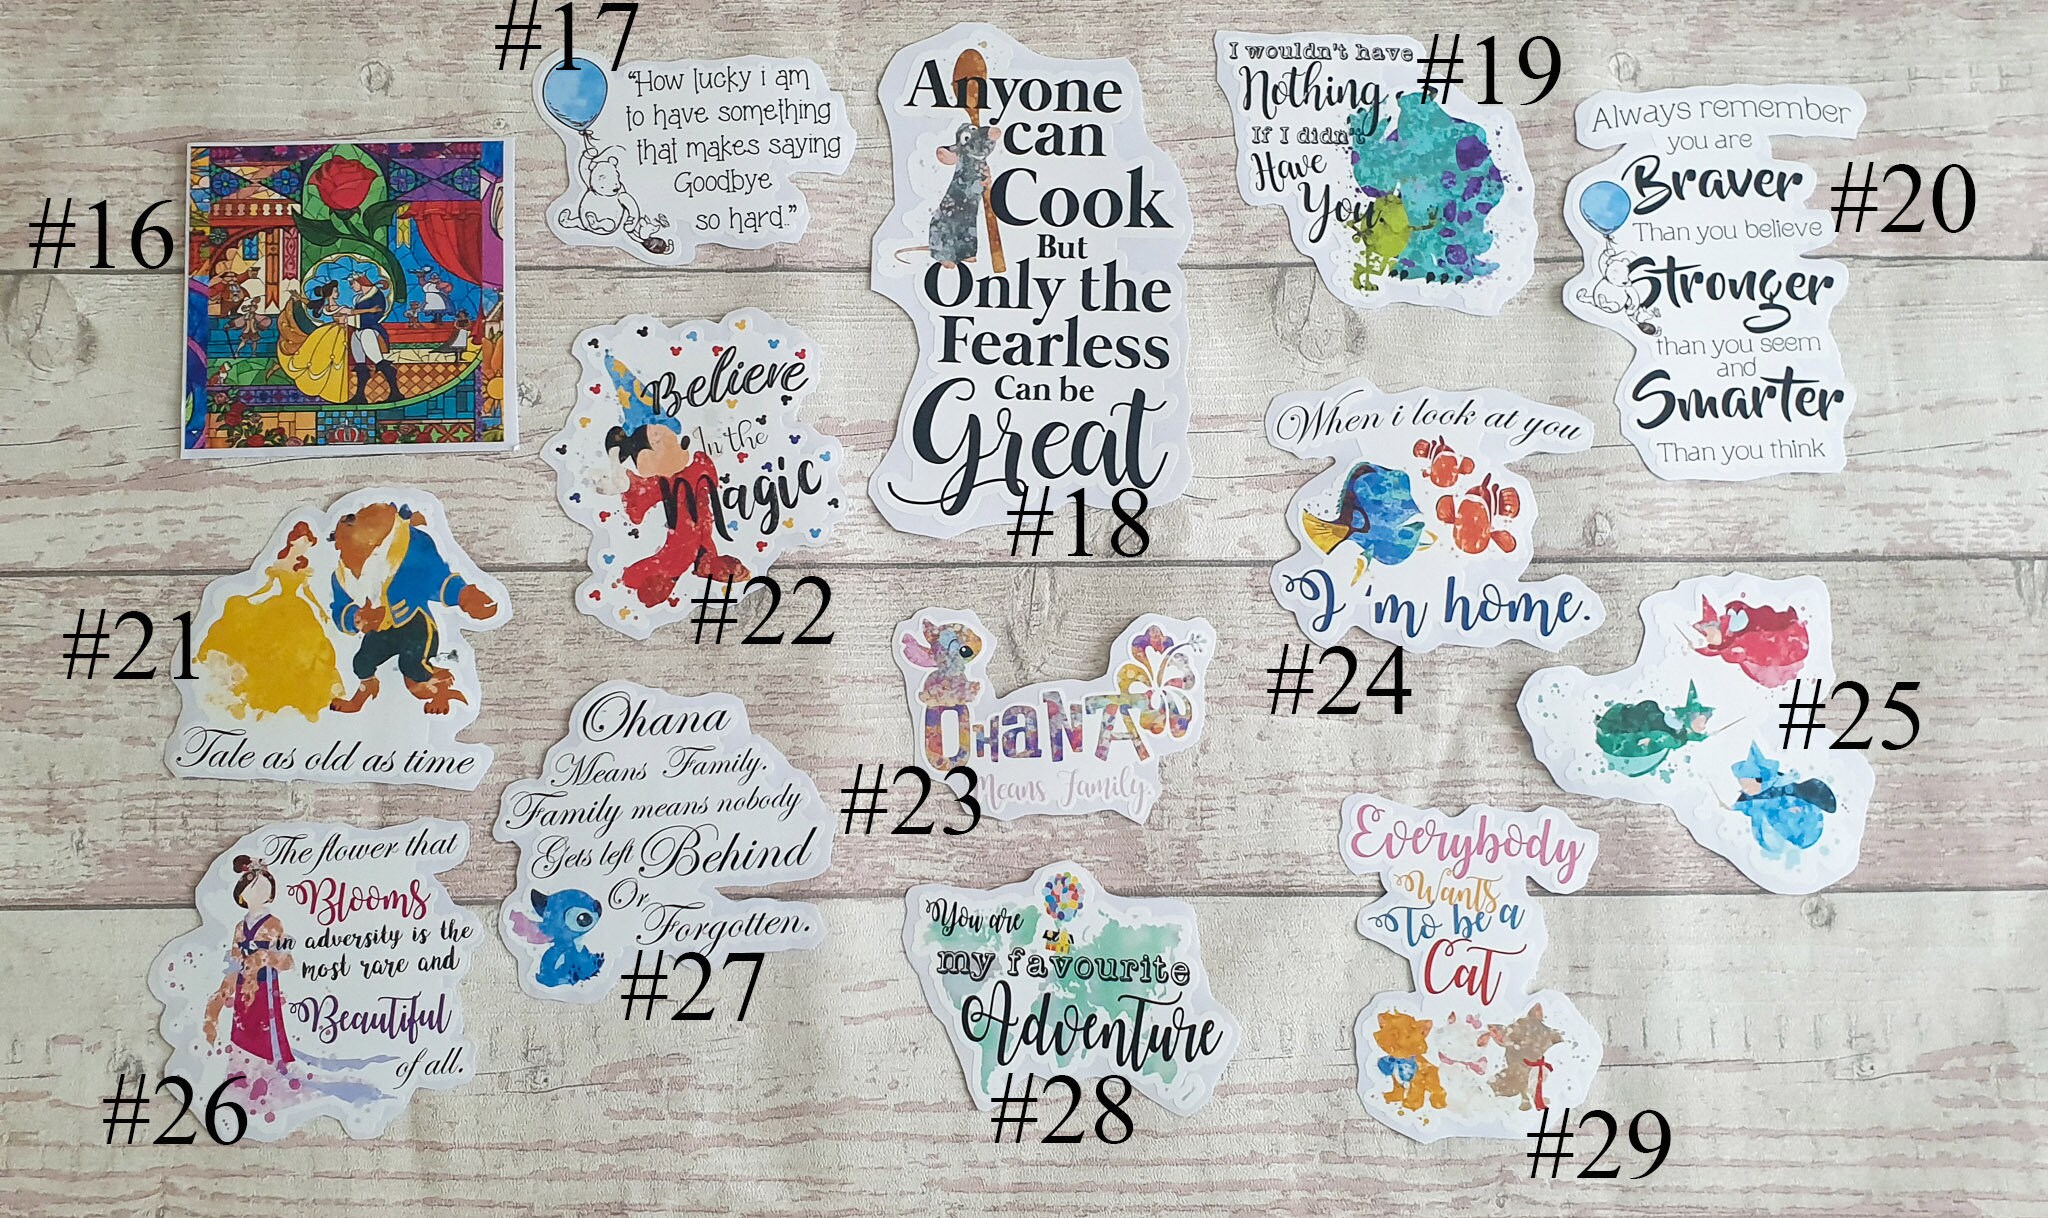 #16
#17
"How lucky i am
to have something
that makes saying
Goodbye
so hard."
Anyone
can
Cook
But
Only the
Fearless
Can be
Great
#18
I wouldn't have
Nothing
If I didn't
Have
You.
#19
Always remember
you are
Braver
Than you believe
Stronger
than you seem
and
Smarter
Than you think
#20
#21
Tale as old as time
Believe
In the
Magic
#22
OHANA
Means Family.
#23
When i look at you
I'm home.
#24
#25
The flower that
Blooms
in adversity is the
most rare and
Beautiful
of all.
#26
Ohana
Means Family.
Family means nobody
Gets left Behind
Or
Forgotten.
#27
You are
my favourite
Adventure
#28
Everybody
Wants
To be a
Cat
#29